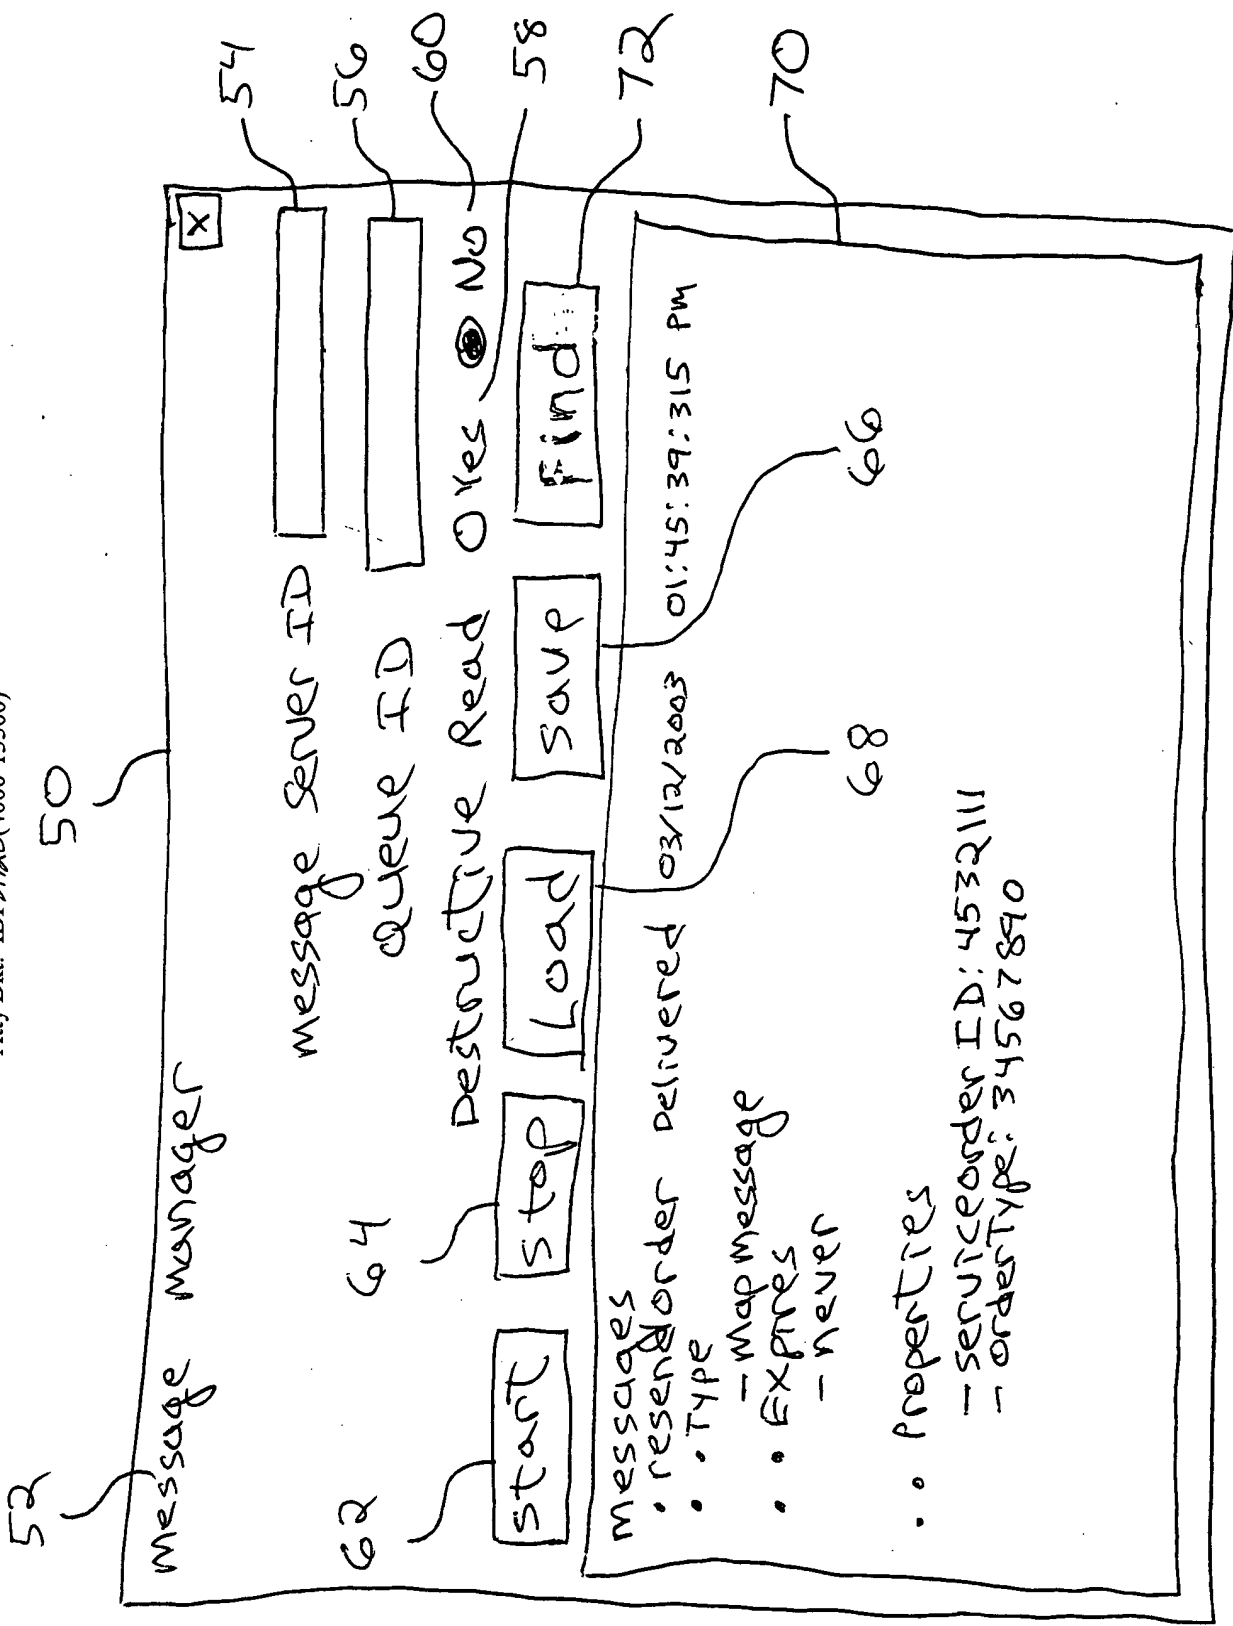 50
52
message manager
X
message Server ID
54
Queue ID
56
Destructive Read O Yes No
60
58
62
64
start
stop
Load
save
Find
72
messages
• resendorder Delivered 03/12/2003 01:45:39:315 PM
• • TYPE
- mapmessage
• • Expires
- never
• • properties
- serviceorder ID: 4532111
- orderType: 34567890
66
68
70